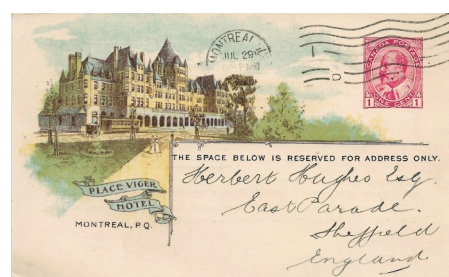 MONTREAL
JUL 29
CANADA POSTAGE
1 ONE CENT 1
THE SPACE BELOW IS RESERVED FOR ADDRESS ONLY.
PLACE VIGER
HOTEL
MONTREAL, P.Q.
Herbert Hughes Esq.
East Parade.
Sheffield
England